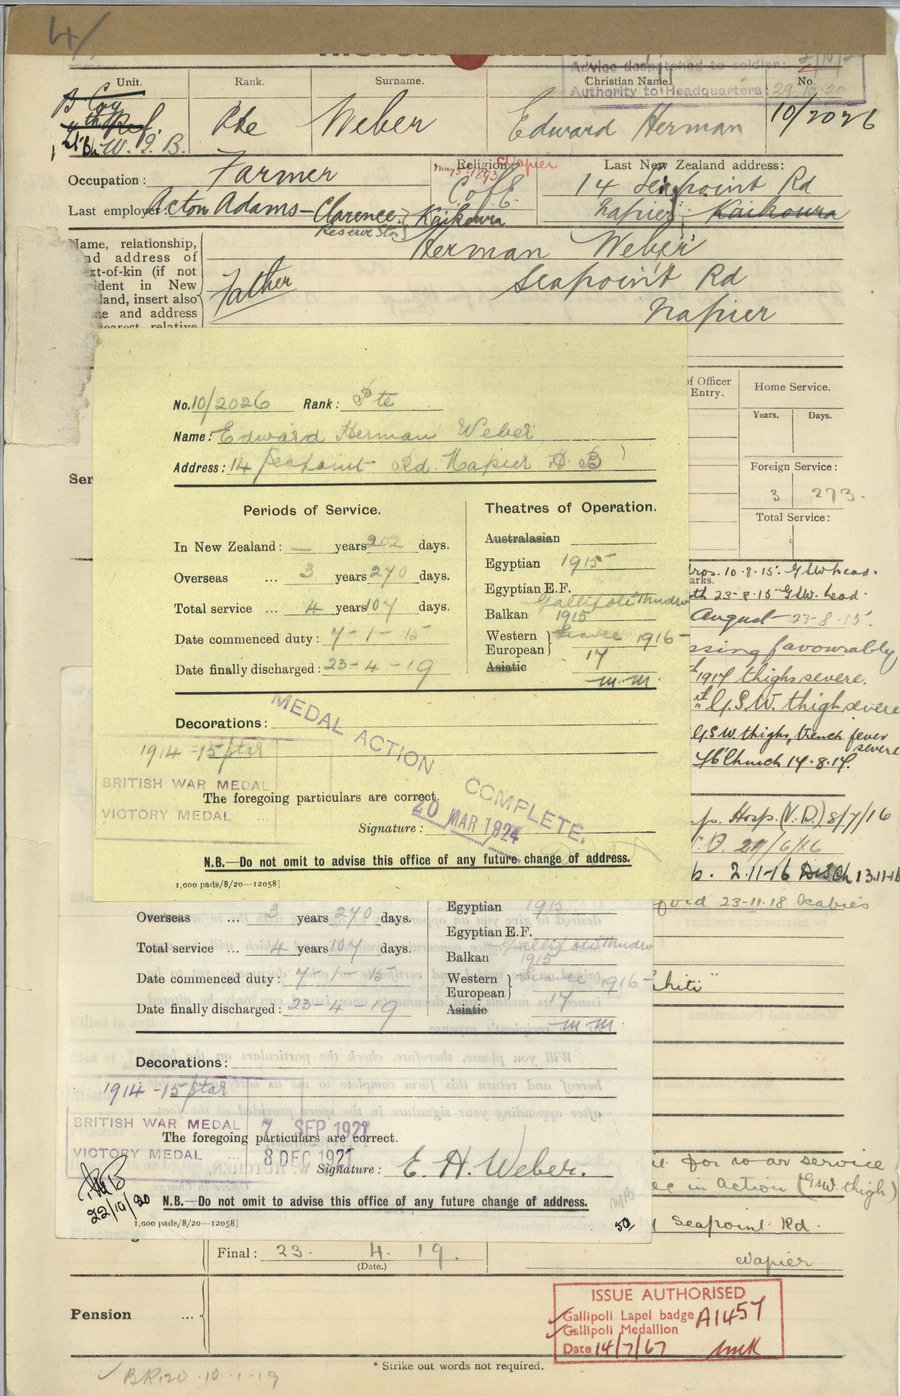 4/
Advice despatched to soldier:
Authority to Headquarters: 29.10.20
Unit. Rank. Surname. Christian Name. No.
B Coy
W. I. B. Pte Weber Edward Herman 10/2026
Occupation: Farmer Religion: Napier Last New Zealand address:
C of E 14 Seapoint Rd
Last employer: Acton Adams - Clarence Kaikoura Napier Kaikoura
Reserve Stn
Name, relationship, Herman Weber
nd address of
ext-of-kin (if not Father Seapoint Rd
ident in New
land, insert also
ne and address Napier
nearest relative
of Officer Home Service.
Entry.
Years. Days.
No. 10/2026 Rank: Pte
Name: Edward Herman Weber
Address: 14 Seapoint Rd. Napier H. B
Foreign Service:
Ser
3 273.
Total Service:
Periods of Service. Theatres of Operation.
In New Zealand: — years 202 days. Australasian
Overseas ... 3 years 270 days. Egyptian 1915
Total service ... 4 years 107 days. Egyptian E.F.
Gallipoli
Date commenced duty: 7-1-15 Balkan 1915
Date finally discharged: 23-4-19 Western European 1916-17
Asiatic m.m.
10.8.15. GSW head.
arks.
th 23-8-15 GSW. head.
August 23-8-15.
ssing favourably
1917 thigh severe.
G.S.W. thigh, severe
G.S.W. thighs, trench fever
severe
Ch'church 14.8.17.
Hosp. (V.D.) 8/7/16
2.11-16 Disch 13.11-16
23-11-18 Scabies
Decorations:
MEDAL ACTION COMPLETE.
1914-15 Star
BRITISH WAR MEDAL
VICTORY MEDAL ...
The foregoing particulars are correct.
20 MAR 1924
Signature:
N.B.—Do not omit to advise this office of any future change of address.
1,000 pads/8/20—12058]
Overseas ... 3 years 270 days. Egyptian 1915
Total service ... 4 years 107 days. Egyptian E.F.
Gallipoli
Date commenced duty: 7-1-15 Balkan 1915
Date finally discharged: 23-4-19 Western European 1916-17
Asiatic m.m.
Decorations:
1914-15 Star
BRITISH WAR MEDAL 7 SEP 1921
The foregoing particulars are correct.
VICTORY MEDAL ... 8 DEC 1921
Signature: E. H. Weber.
22/10/20
N.B.—Do not omit to advise this office of any future change of address.
1,000 pads/8/20—12058] 50
for war service
in action (GSW. thigh)
Seapoint Rd.
Napier
Final: 23. 4. 19.
(Date.)
Pension ...
ISSUE AUTHORISED
Gallipoli Lapel badge A1457
Gallipoli Medallion
Date 14/7/67
* Strike out words not required.
10.1.19